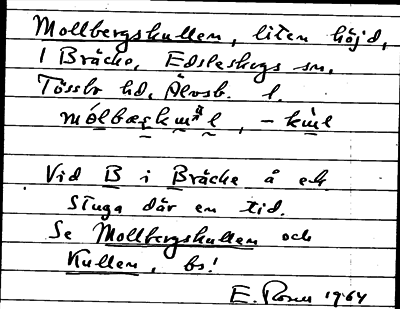 Mollbergskullen, liten höjd,
i Bräcke, Edsleskogs sn,
Tössbo hd, Älvsb. l.
Vid B i Bräcke å och
stuga där en tid.
Se Mollbergskullen och
Kullen, bs!
E. Rosen 1964